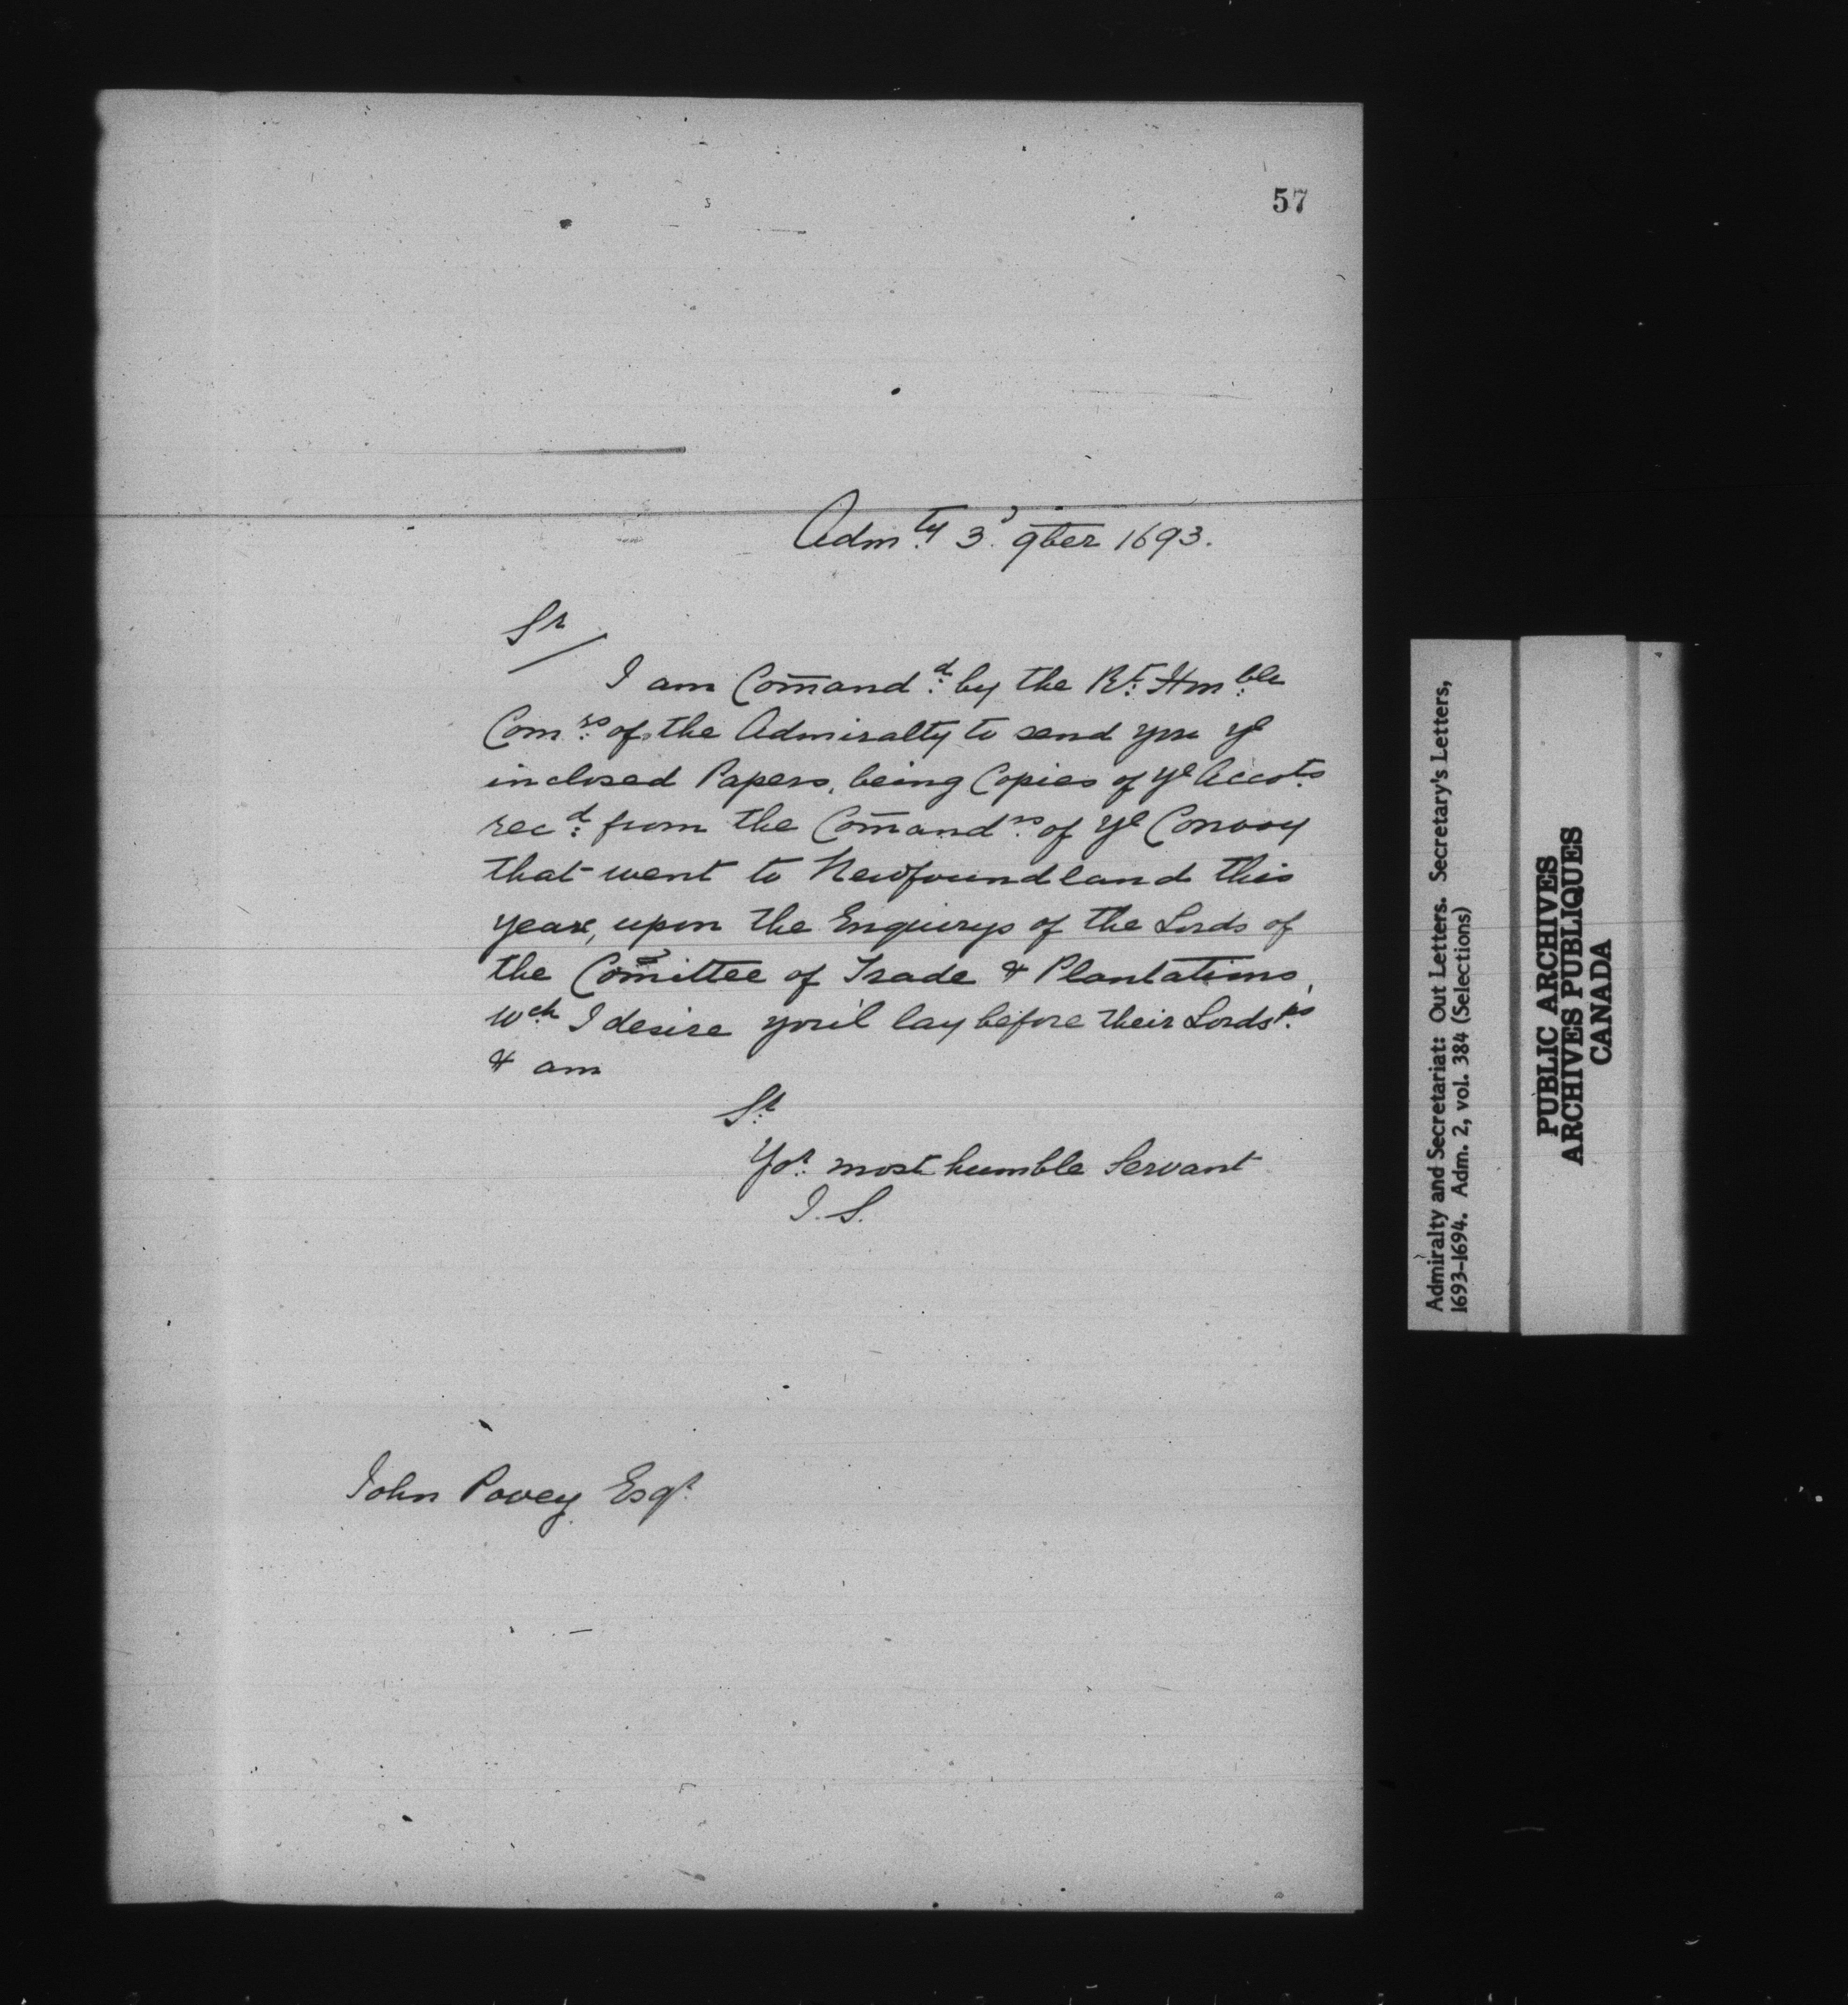 57
Adm.ty 3.d 9ber 1693.
Sr
I am Com̄and.d by the Rt. Hm.ble
Com.rs of the Admiralty to send you ye
inclosed Papers, being Copies of ye Accots.
rec.d from the Com̄and.rs of ye Convoy
that went to Newfoundland this
year, upon the Enquirys of the Lords of
the Com̄ittee of Trade & Plantations,
wch. I desire you'l lay before their Lords.ps
& am
Sr.
Yor. most humble Servant
J. S.
John Povey Esqr.
Admiralty and Secretariat: Out Letters. Secretary's Letters,
1693-1694. Adm. 2, vol. 384 (Selections)
PUBLIC ARCHIVES
ARCHIVES PUBLIQUES
CANADA